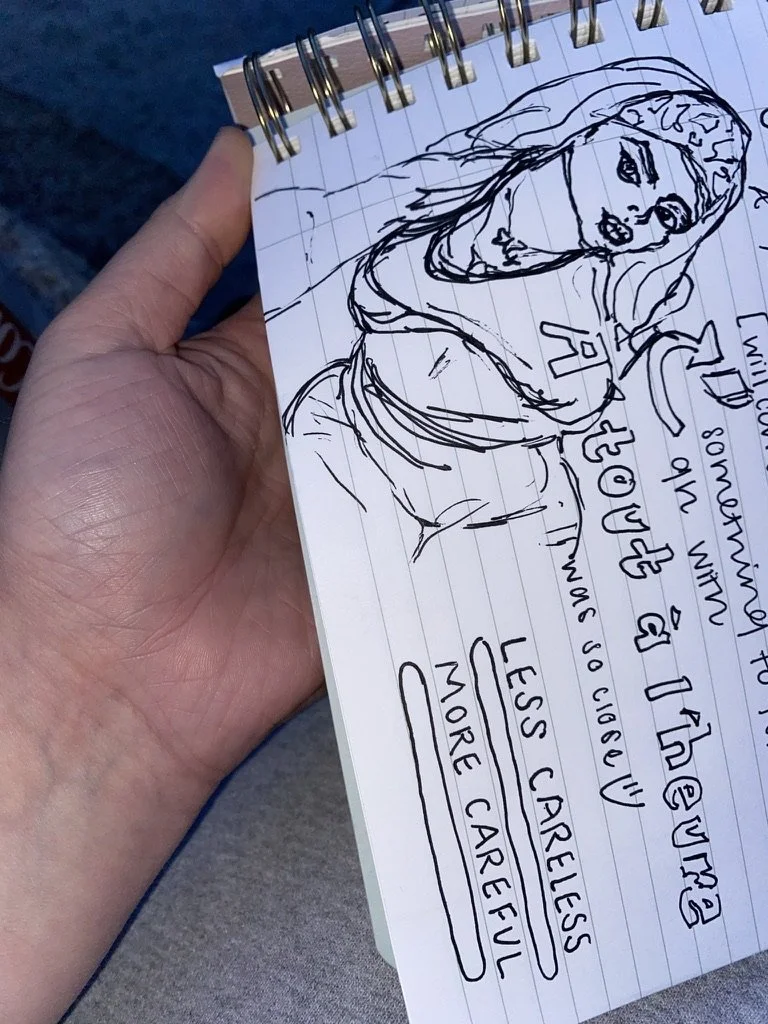 [will
something to
qn with
A tout à l'heure
it was so close
LESS CARELESS
MORE CAREFUL